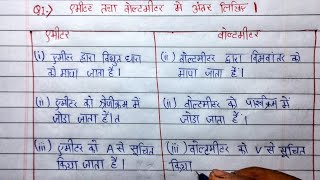 Q1.) एमीटर तथा वोल्टमीटर में अंतर लिखिए।
एमीटर
वोल्टमीटर
(i) एमीटर द्वारा विद्युत धारा
को मापा जाता है।
(i) वोल्टमीटर द्वारा विभवांतर को
मापा जाता है।
(ii) एमीटर को श्रेणीक्रम में
जोड़ा जाता है।
(ii) वोल्टमीटर को पार्श्वक्रम में
जोड़ा जाता है।
(iii) एमीटर को A से सूचित
किया जाता है।
(iii) वोल्टमीटर को V से सूचित
किया